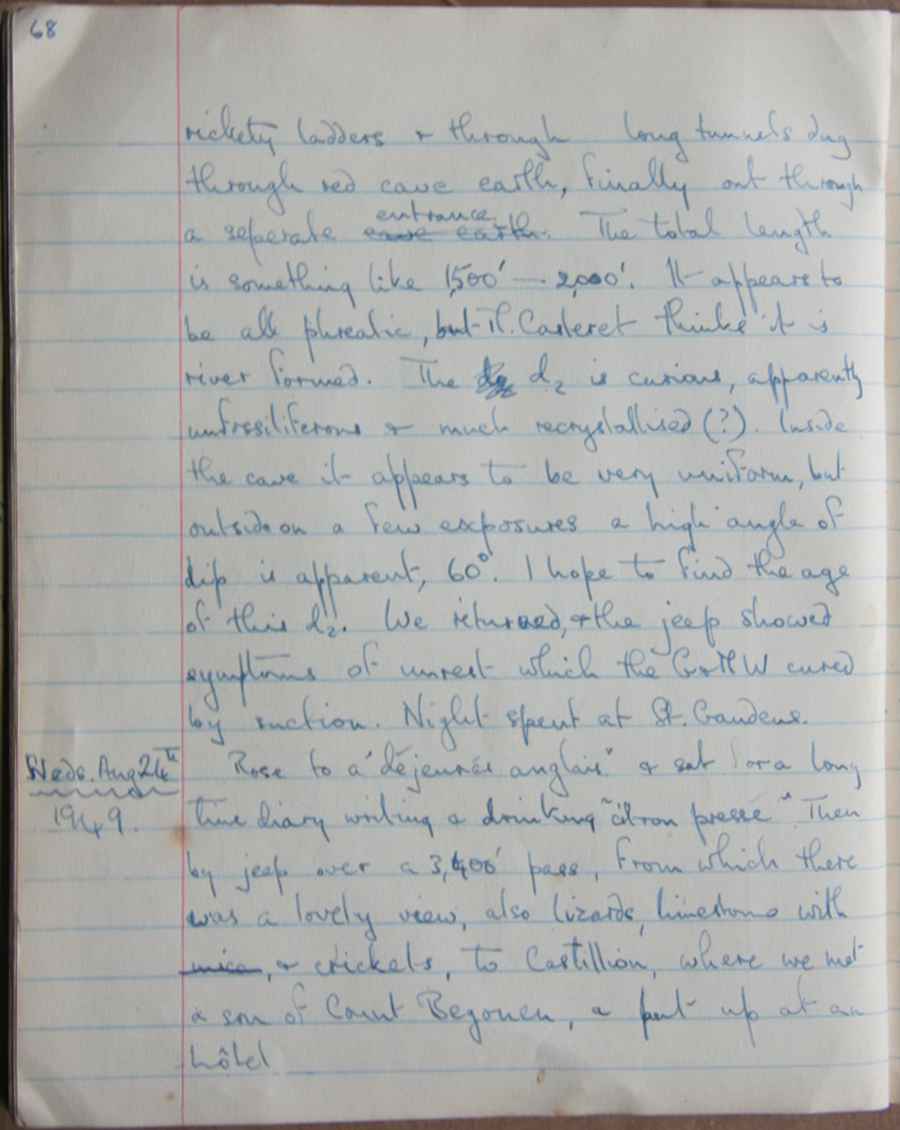 68
rickety ladders & through long tunnels dug
through red cave earth, finally out through
entrance
a seperate cave earth. The total length
is something like 1,500' — 2,000'. It appears to
be all phreatic, but M. Casteret thinks it is
river formed. The d₂ is curious, apparently
unfossiliferous & much recrystallised (?). Inside
the cave it appears to be very uniform, but
outside on a few exposures a high angle of
dip is apparent, 60°. I hope to find the age
of this d₂. We returned, & the jeep showed
symptoms of unrest which the W cured
by suction. Night spent at St. Gaudens.
Weds. Aug 24th Rose to a "déjeunér anglais" & sat for a long
1949. time diary writing & drinking "citron pressé". Then
by jeep over a 3,400' pass, from which there
was a lovely view, also lizards, limestone with
mica, & crickets, to Castillion, where we met
a son of Count Begouen, & put up at an
hôtel